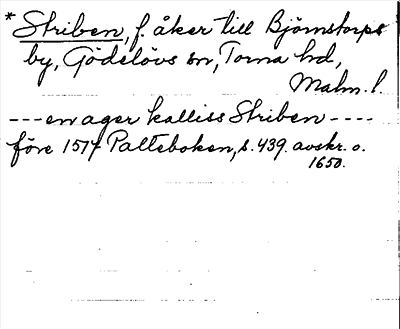 * Striben, f. åker till Björnstorps
by, Gödelövs sn, Torna hd,
Malm. l.
---en ager kalliss Striben----
före 1514 Palteboken, s. 439. avskr. o.
1650.